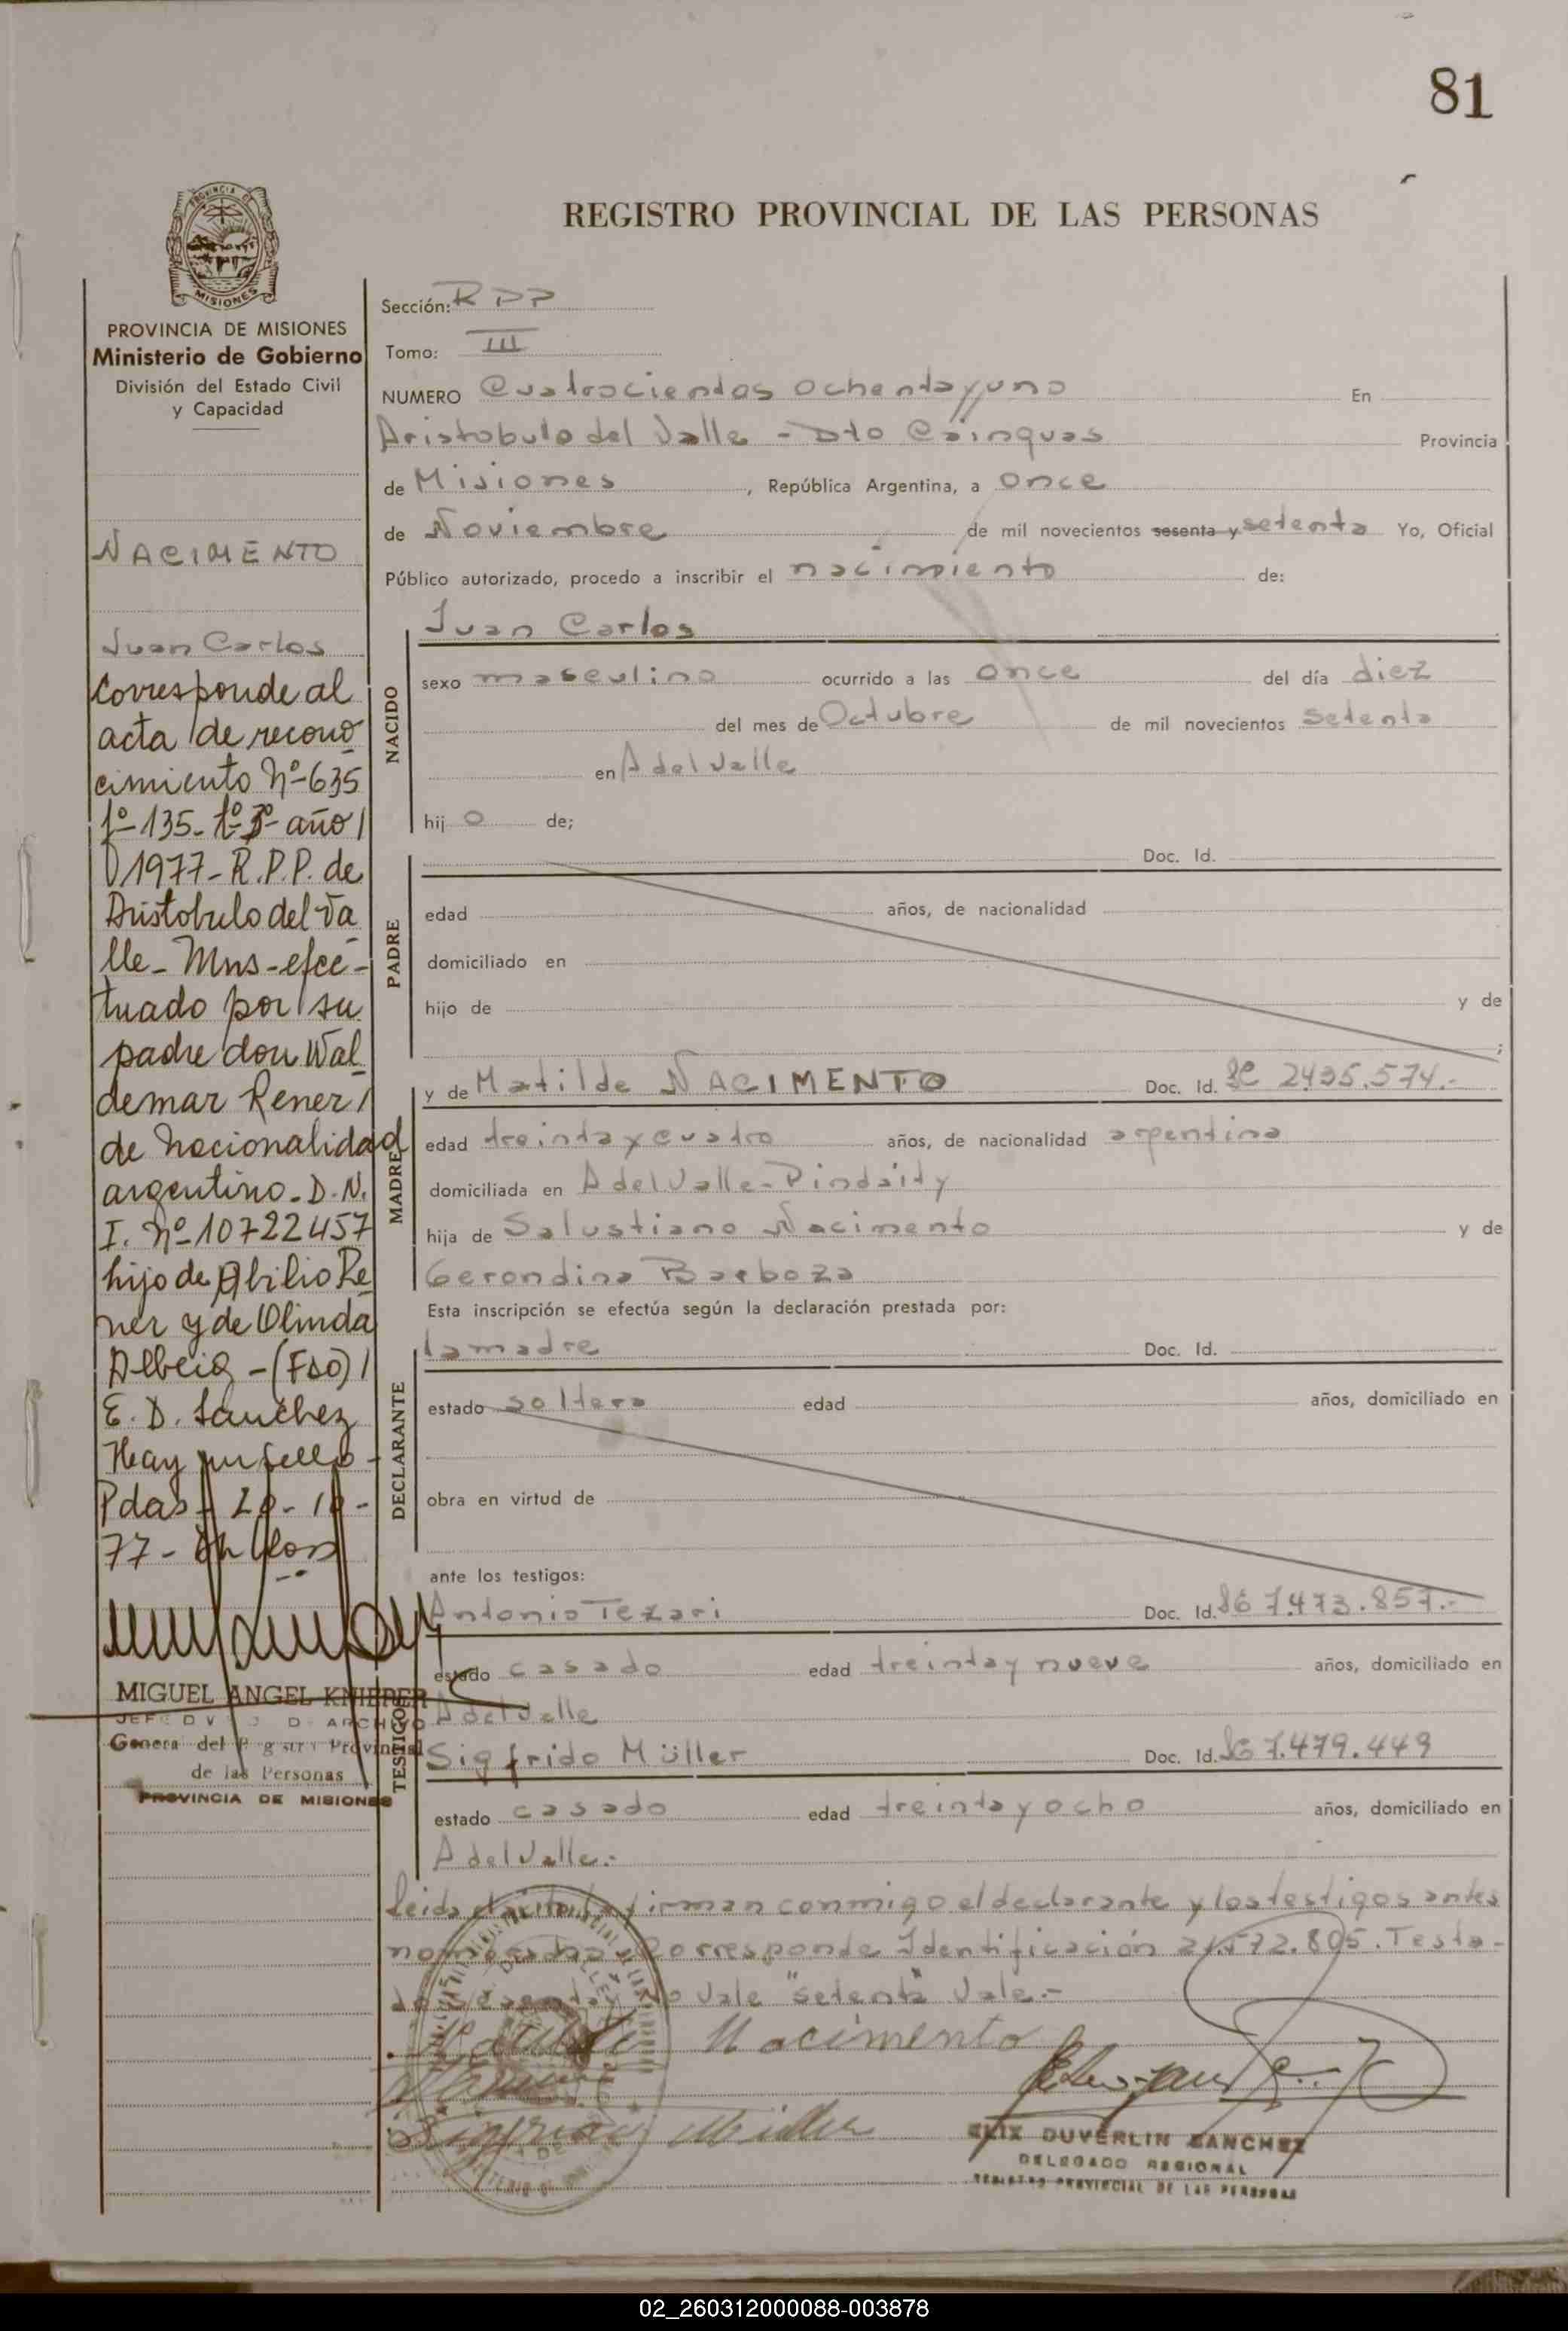 81
REGISTRO PROVINCIAL DE LAS PERSONAS
PROVINCIA DE MISIONES
Ministerio de Gobierno
División del Estado Civil
y Capacidad
NACIMENTO
Juan Carlos
Corresponde al
acta de recono
cimiento Nº 635
fº 135- tº 3º año
1977- R.P.P. de
Aristobulo del Va
lle- Mns- efec-
tuado por su
padre don Wal
demar Rener
de nacionalidad
argentino- D.N.
I. Nº 10722457
hijo de Abilio Re
ner y de Olinda
(Fdo)
E. D. Sanchez
Hay un sello-
Pdas- 20-10-
77-
MIGUEL ANGEL KNIEPER
General del Registro Provincial
de las Personas
PROVINCIA DE MISIONES
Sección: RPP
Tomo: III
NUMERO Cuatrocientos ochenta y uno En
Aristobulo del Valle - Dto Cainguas Provincia
de Misiones, República Argentina, a once
de Noviembre de mil novecientos sesenta y setenta Yo, Oficial
Público autorizado, procedo a inscribir el nacimiento de:
NACIDO
Juan Carlos
sexo masculino ocurrido a las once del día diez
del mes de Octubre de mil novecientos setenta
en A del Valle
hij o de;
PADRE
Doc. Id.
edad años, de nacionalidad
domiciliado en
hijo de y de
;
MADRE
y de Matilde NACIMENTO Doc. Id. LC 2435.574.-
edad treinta y cuatro años, de nacionalidad argentina
domiciliada en A del Valle - Pindaity
hija de Salustiano Nacimento y de
Gerondina Barboza
Esta inscripción se efectúa según la declaración prestada por:
DECLARANTE
la madre Doc. Id.
estado soltera edad años, domiciliado en
obra en virtud de
ante los testigos:
TESTIGOS
Antonio Tezari Doc. Id. 7.473.857.-
estado casado edad treinta y nueve años, domiciliado en
A del Valle
Sigfrido Müller Doc. Id. 7.479.449
estado casado edad treinta y ocho años, domiciliado en
A del Valle.-
Leida el acta la firman conmigo el declarante y los testigos antes
nombrados Corresponde Identificación 21.572.805. Testa-
do "sesenta y" No Vale "setenta" Vale.-
Matilde Nacimento
Sigfrido Müller
ELIX DUVERLIN SANCHEZ
DELEGADO REGIONAL
REGISTRO PROVINCIAL DE LAS PERSONAS
02_260312000088-003878